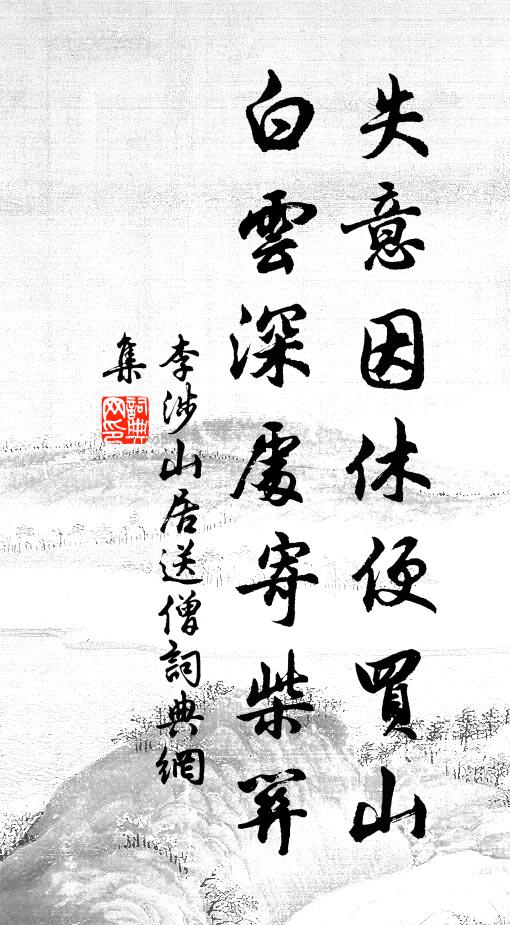 失意因休便買山
白雲深處寄柴關
李涉山居送僧詞典網
集
詞典
网印